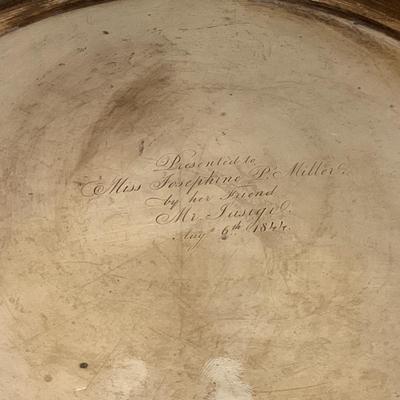 Presented to
Miss Josephine P. Miller.
by her Friend
Mr. Iasigi.
Aug. 6th 1844.